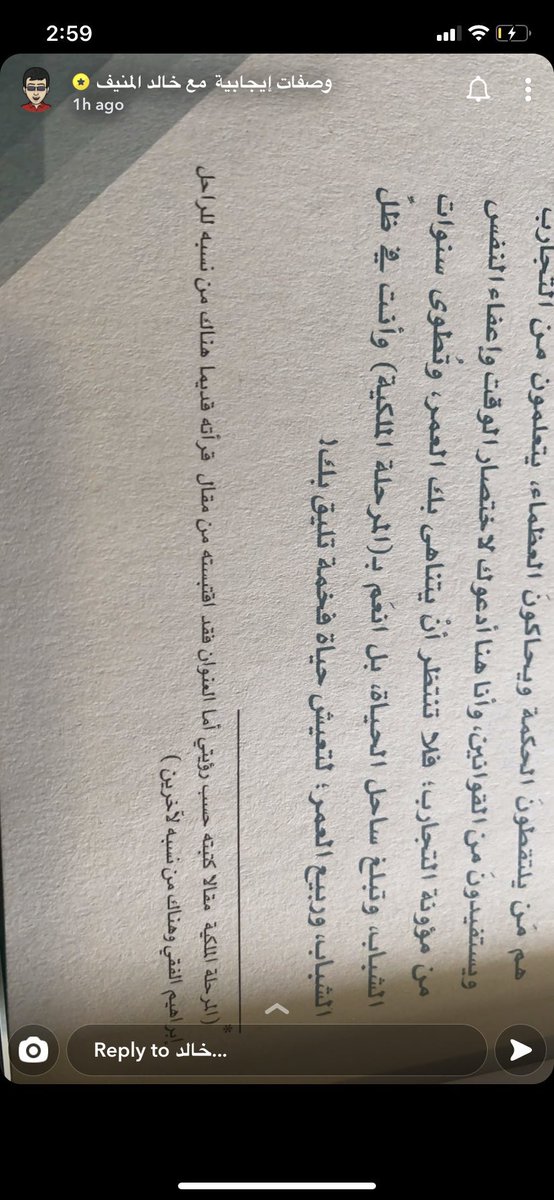 2:59
وصفات إيجابية مع خالد المنيف
1h ago
هم مَن يلتقطونَ الحكمة ويحاكونَ العظماء، يتعلمون من التجارب
ويستفيدونَ من القوانين، وأنا هنا أدعوك لاختصار الوقت وإعفاء النفس
من مؤونة التجارب؛ فلا تنتظر أنْ يتناهى بك العمر، وتُطوى سنوات
الشباب، وتبلغ ساحل الحياة، بل انعَم بـ(المرحلة الملكية) وأنت في ظلِّ
الشباب، وربيع العمر؛ لتعيش حياة فخمة تليق بك!
* (المرحلة الملكية مقالا كتبته حسب رؤيتي أما العنوان فقد اقتبسته من مقال قرأته قديما هناك من نسبه للراحل
إبراهيم الفقي وهناك من نسبه لآخرين )
Reply to خالد...